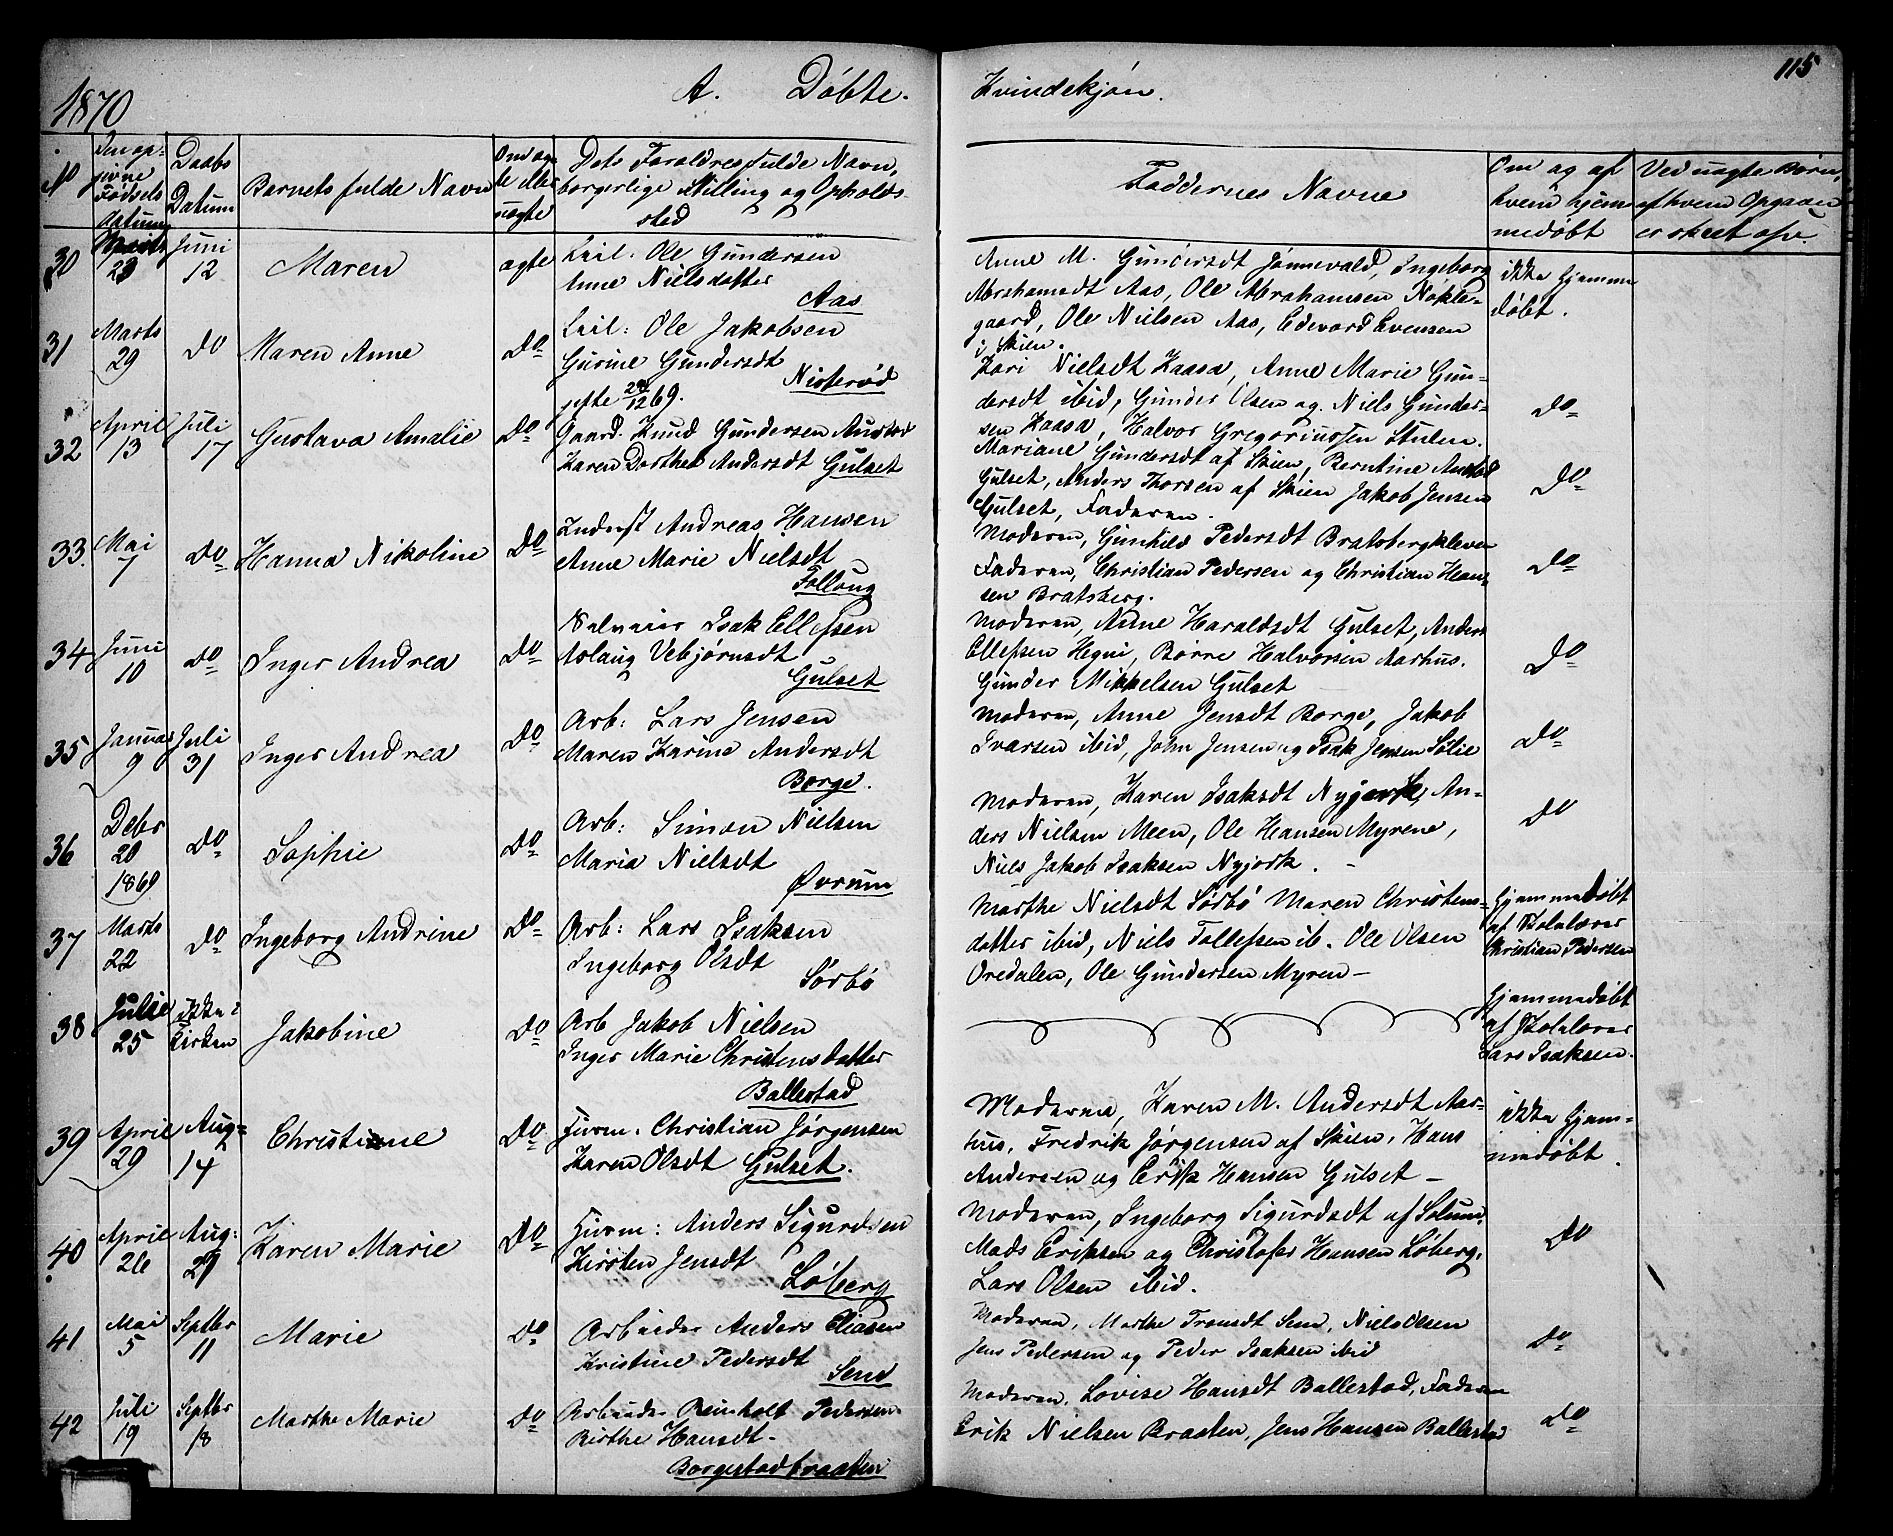 115
1870
A. Döbte. Kvindekjön.
No
Den op-
givne
Fødsels
datum
Daabs
Datum
Barnets fulde Navn
Om æg-
te eller
uægte
Dets Forældres fulde Navn,
borgerlige Stilling og Opholds-
sted
Faddernes Navne
Om og af
hvem hjem
medöbt
Ved uægte Börn,
af hvem Opgaven
er skeet osv.
30
Marts
23
Juni
12
Maren
ægte
Leil. Ole Gundersen
Anne Nielsdatter
Aas
Anne M. Gundersdt Jønnevald, Ingeborg
Abrahamsdt Aas, Ole Abrahamsen Nøkle-
gaard, Ole Nielsen Aas, Edevard Evensen
i Skien.
ikke hjemme
döbt.
31
Marts
29
Do
Maren Anne
Do
Leil: Ole Jakobsen
Gurine Gundersdt
Nisterød
gifte 29/12 69.
Kari Nielsdt Kaasa, Anne Marie Gun-
dersdt ibid, Gunder Olsen og Niels Gunder-
sen Kaasa, Halvor Gregoriussen Stulen.
Do
32
April
13
Juli
17
Gustava Amalie
Do
Gaard. Knud Gundersen
Karen Dorthea Andersdt Gulset
Mariane Gundersdt af Skien, Berntine
Gulset, Anders Thorsen af Skien Jakob Jensen
Gulset, Faderen.
Do
33.
Mai
7
Do
Hanna Nikoline
Do
Inderst Andreas Hansen
Anne Marie Nielsdt
Follaug
Moderen, Gunhild Pedersdt Bratsbergkleven
Faderen, Christian Pedersen og Christian Han-
sen Bratsberg.
Do
34
Juni
10
Do
Inger Andrea
Do
Selveier Isak Ellefsen
Aslaug Vebjörnsdt
Gulset
Moderen, Anne Haraldsdt Gulset, Anders
Ellefsen Hegni, Borre Halvorsen Aarhus.
Gunder Mikkelsen Gulset
Do
35
Januar
9
Juli
31
Inger Andrea
Do
Arb: Lars Jensen
Maren Karine Andersdt
Borge.
Moderen, Anne Jensdt Borge, Jakob
Ivarsen ibid, John Jensen og Isak Jensen Sølie
Do
36
Debr
20
1869
Do
Sophie
Do
Arb: Simon Nielsen
Maria Nielsdt
Øvrum
Moderen, Karen Isaksdt Nyjork, An-
ders Nielsen Meen, Ole Hansen Myrene,
Niels Jakob Isaksen Nyjork. -
Do
37
Marts
22
Do
Ingeborg Andrine
Do
Arb: Lars Isaksen
Ingeborg Olsdt
Sörbö
Marthe Nielsdt Sörbö Maren Christens-
datter ibid, Niels Tollefsen ib. Ole Olsen
Oredalen, Ole Gundersen Myren-
Hjemmedöbt
af Skolelærer
Christian Pedersen
38
Julie
25
Ikke i
Kirken
Jakobine
Do
Arb Jakob Nielsen
Inger Marie Christensdatter
Ballestad
Hjemmedöbt
af Skolelærer
Lars Isaksen.
39
April
29
Aug
14
Christiane
Do
Huvm. Christian Jørgensen
Karen Olsdt Gulset.
Moderen, Karen M. Andersdt Aar-
hus, Fredrik Jørgensen af Skien, Hans
Andersen og Erik Hansen Gulset -
ikke hjem-
medöbt.
40
April
26
Aug:
29
Karen Marie
Do
Huvm: Anders Sigurdsen
Kirsten Jensdt
Löberg
Moderen, Ingeborg Sigurdsdt af Solum,
Mads Eriksen og Christofer Hansen Löberg,
Lars Olsen ibid.
Do
41
Mai
5
Septbr
11
Marie
Do
Arbeider Anders Eliasen
Kristine Pedersdt
Sem
Moderen, Marthe Fransdt Sem, Niels Olsen
Jens Pedersen og Peder Isaksen ibid
Do
42
Juli
19
Septbr
18
Marthe Marie
Do
Arbeider Reinholt Pedersen
Birthe Hansdt-
Borgestadbraaten
Moderen, Lovise Hansdt Ballestad, Faderen
Erik Nielsen Braaten, Jens Hansen Ballestad
Do